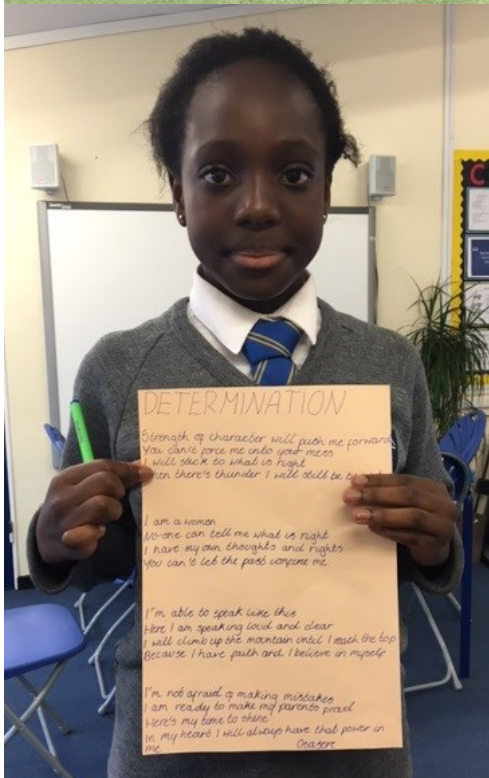 DETERMINATION
Strength of character will push me forward
You can't force me into your mess
I will stick to what is right
hen there's thunder I will still be b
I am a woman
No-one can tell me what is right
I have my own thoughts and rights
You can't let the past confine me.
I'm able to speak like this
Here I am speaking loud and clear
I will climb up the mountain until I reach the top
Because I have faith and I believe in myself
I'm not afraid of making mistakes
I am ready to make my parents proud
Here's my time to shine
In my heart I will always have that power in
me.
C